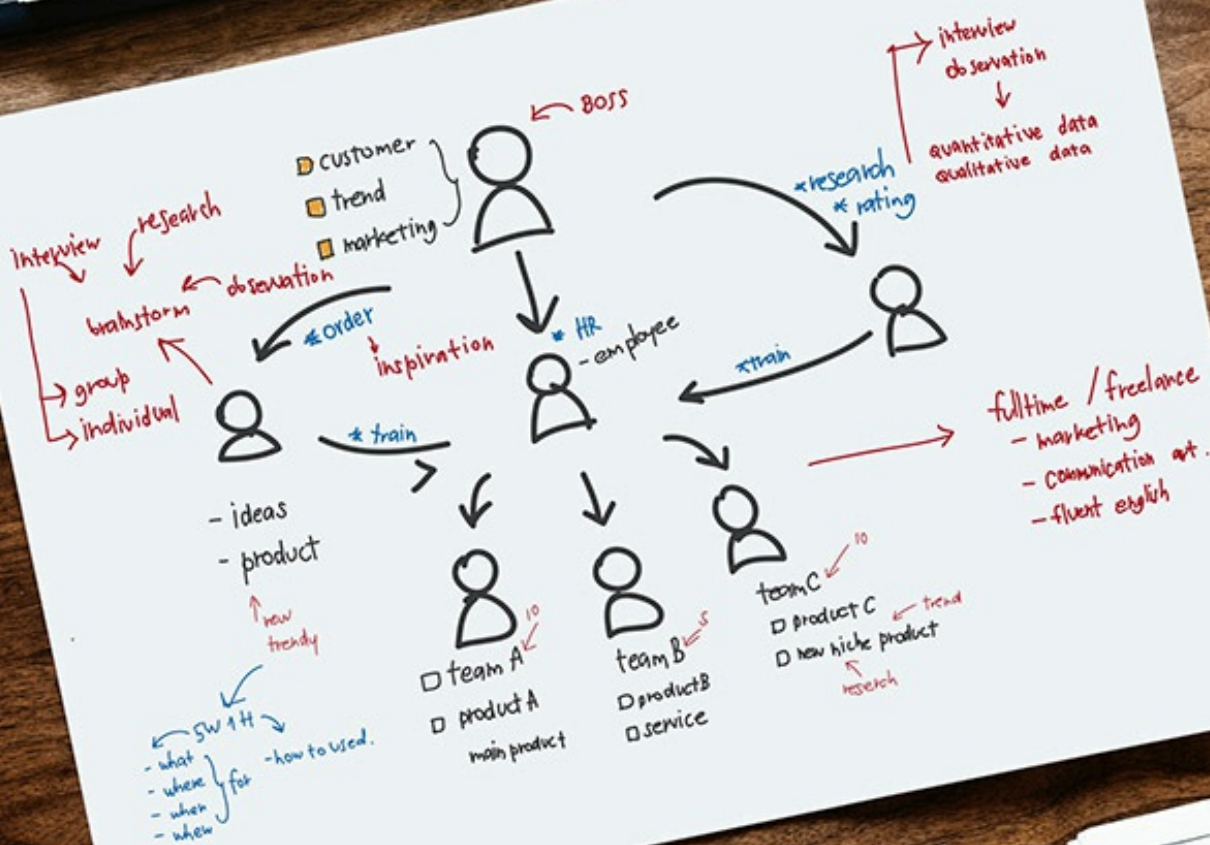 BOSS
customer
trend
marketing
interview
observation
quantitative data
qualitative data
*research
* rating
research
interview
obsevation
brainstorm
group
individual
*order
inspiration
* HR
- employee
*train
* train
fulltime / freelance
- marketing
- communication apt.
- fluent english
- ideas
- product
new
trendy
5W1H
- what
- where
- when
for
- how to used.
10
team A
product A
main product
5
team B
product B
service
10
team C
product C
trend
new niche product
reserch